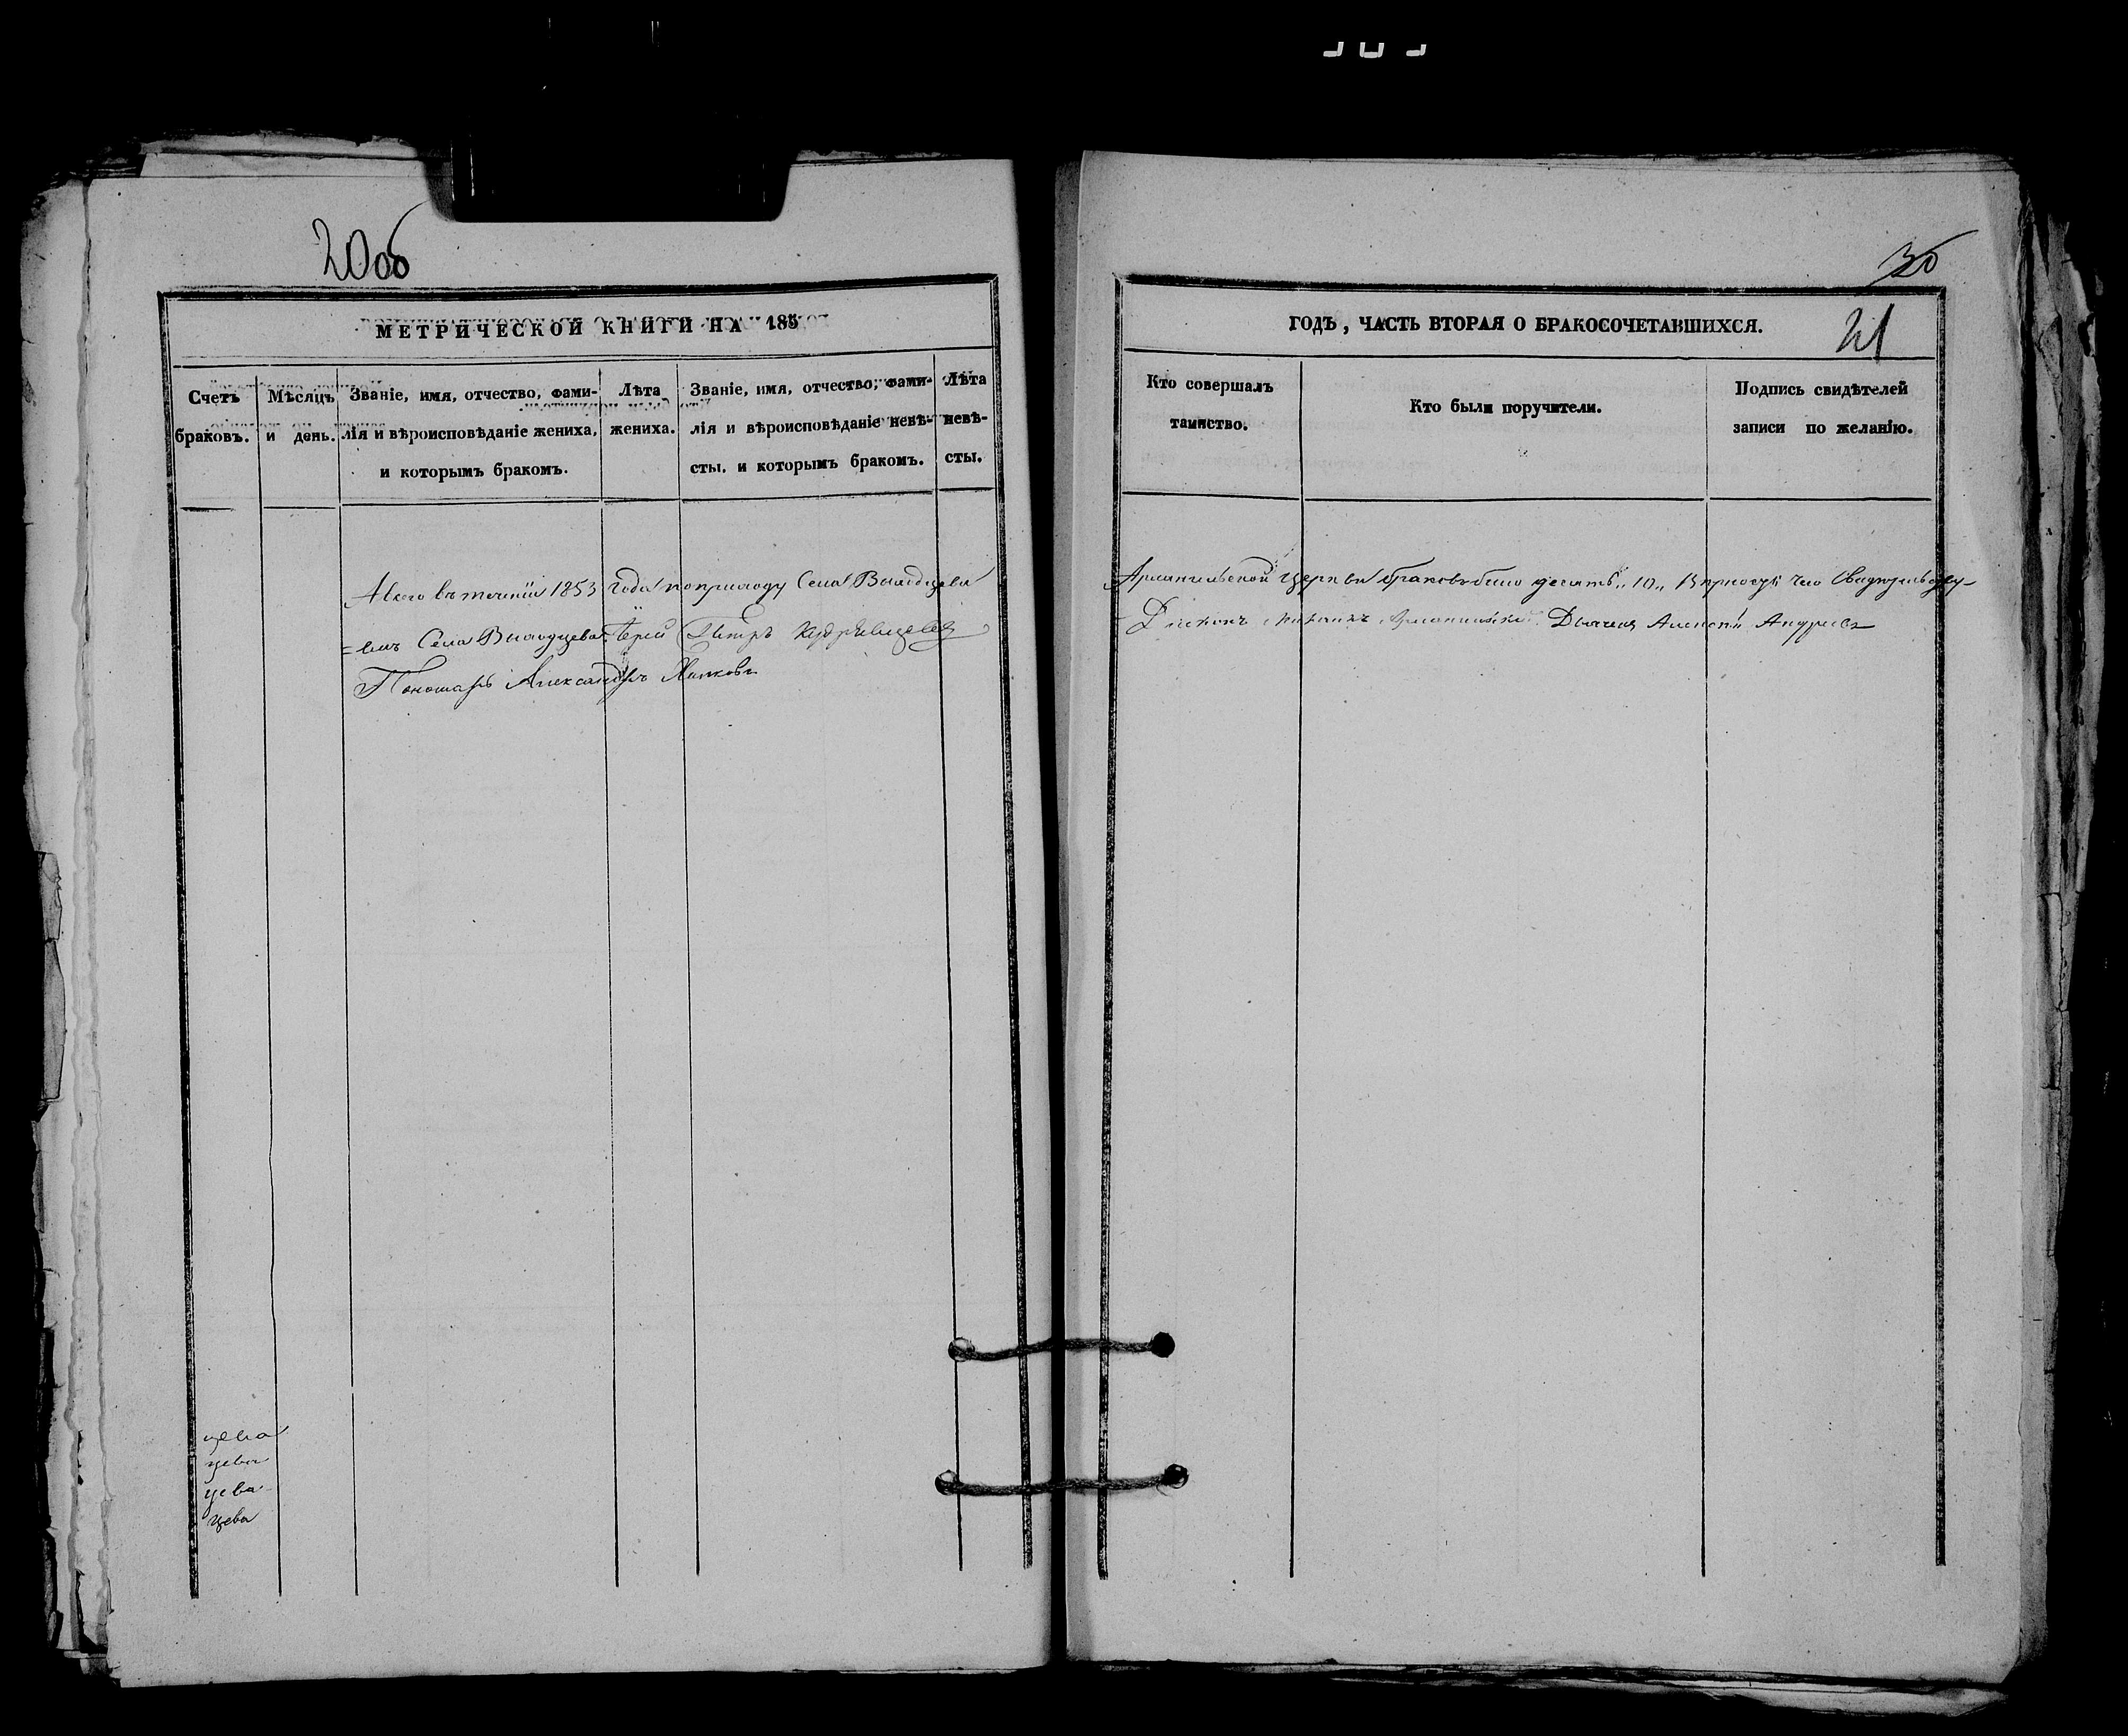 20об
МЕТРИЧЕСКОЙ КНИГИ НА 185
Счетъ браковъ.
Мѣсяцъ и день.
Званіе, имя, отчество, фами-
лія и вѣроисповѣданіе жениха,
и которымъ бракомъ.
Лѣта
жениха.
Званіе, имя, отчество, фами-
лія и вѣроисповѣданіе невѣ-
сты, и которымъ бракомъ.
Лѣта
невѣ-
сты.
А всего въ теченіи 1853 года по приходу Села
Села Іерей Петръ
Пономарь Александръ
цева
цева
цева
цева
30
21
ГОДЪ, ЧАСТЬ ВТОРАЯ О БРАКОСОЧЕТАВШИХСЯ.
Кто совершалъ
таинство.
Кто были поручители.
Подпись свидѣтелей
записи по желанію.
Архангельской Церкви браковъ было десять „10„
Діаконъ Дьячекъ Алексѣй Андреевъ